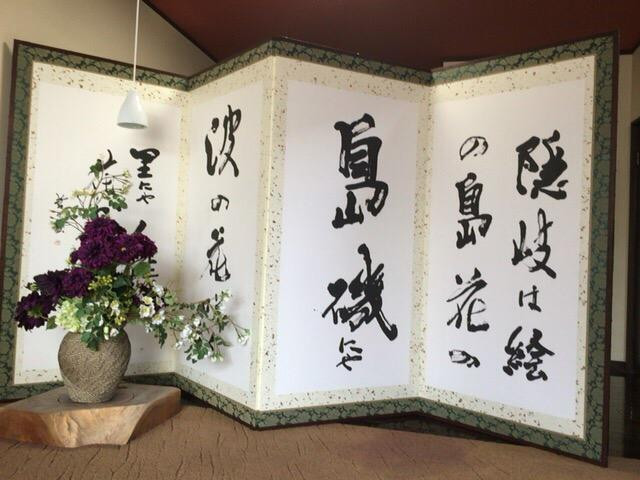 隠岐は絵
の島花の
島磯にや
波の花
里にや